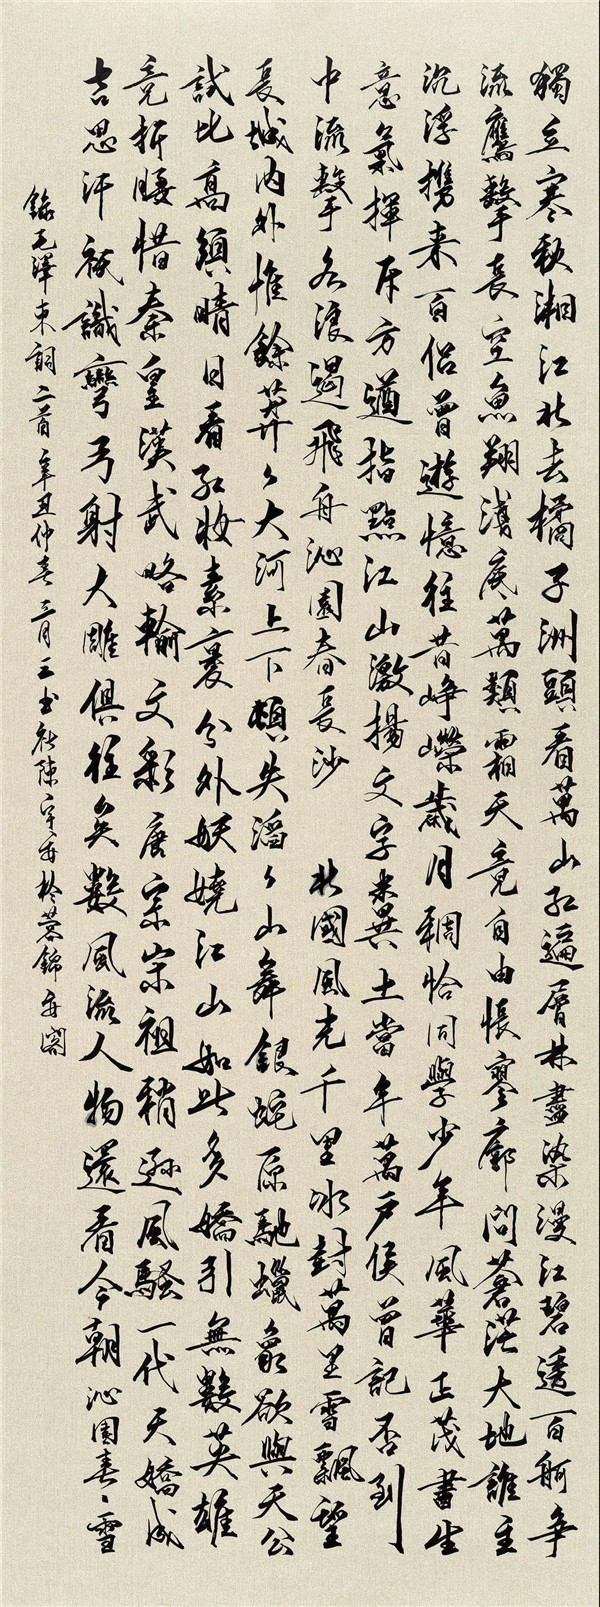 獨立寒秋湘江北去橘子洲頭看萬山紅遍層林盡染漫江碧透百舸爭
流鷹擊長空魚翔淺底萬類霜天竟自由悵寥廓問蒼茫大地誰主
沉浮携来百侣曾遊憶往昔崢嶸歲月稠恰同學少年風華正茂書生
意氣揮斥方遒指點江山激揚文字糞土當年萬戶侯曾記否到
中流擊水浪遏飛舟沁園春長沙 北國風光千里冰封萬里雪飄望
長城内外惟餘莽々大河上下頓失滔々山舞銀蛇原馳蠟象欲與天公
試比高須晴日看紅妝素裹分外妖嬈江山如此多嬌引無數英雄
竞折腰惜秦皇漢武略輸文彩唐宗宋祖稍遜風騷一代天嬌成
吉思汗祇識彎弓射大雕俱往矣數風流人物還看今朝沁園春、雪
錄毛澤東詞二首辛丑仲春三月 陳 於蓉錦 閣